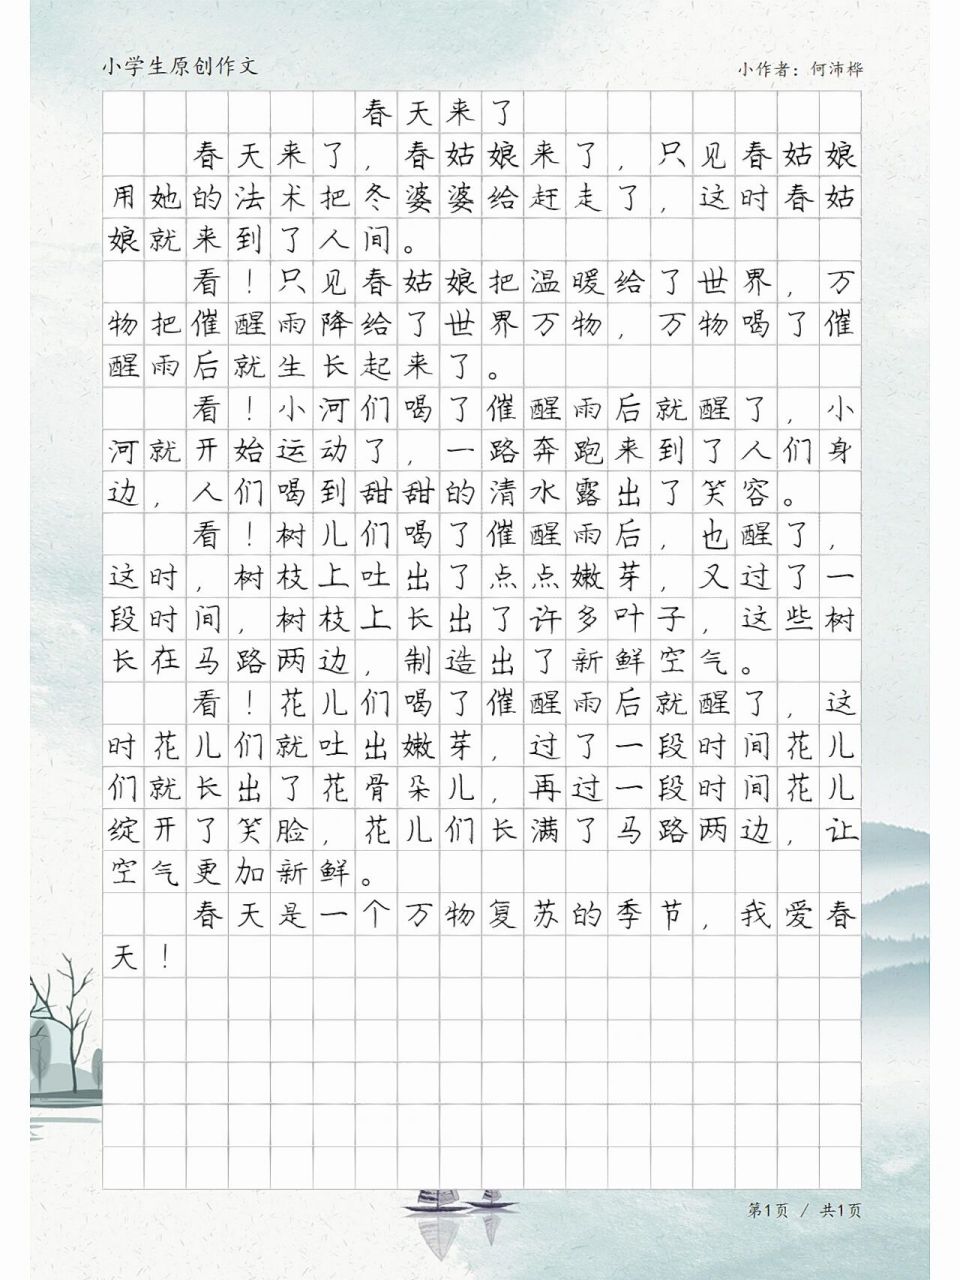 小学生原创作文
小作者：何沛桦
春天来了
春天来了，春姑娘来了，只见春姑娘
用她的法术把冬婆婆给赶走了，这时春姑
娘就来到了人间。
看！只见春姑娘把温暖给了世界，万
物把催醒雨降给了世界万物，万物喝了催
醒雨后就生长起来了。
看！小河们喝了催醒雨后就醒了，小
河就开始运动了，一路奔跑来到了人们身
边，人们喝到甜甜的清水露出了笑容。
看！树儿们喝了催醒雨后，也醒了，
这时，树枝上吐出了点点嫩芽，又过了一
段时间，树枝上长出了许多叶子，这些树
长在马路两边，制造出了新鲜空气。
看！花儿们喝了催醒雨后就醒了，这
时花儿们就吐出嫩芽，过了一段时间花儿
们就长出了花骨朵儿，再过一段时间花儿
绽开了笑脸，花儿们长满了马路两边，让
空气更加新鲜。
春天是一个万物复苏的季节，我爱春
天！
第1页 / 共1页